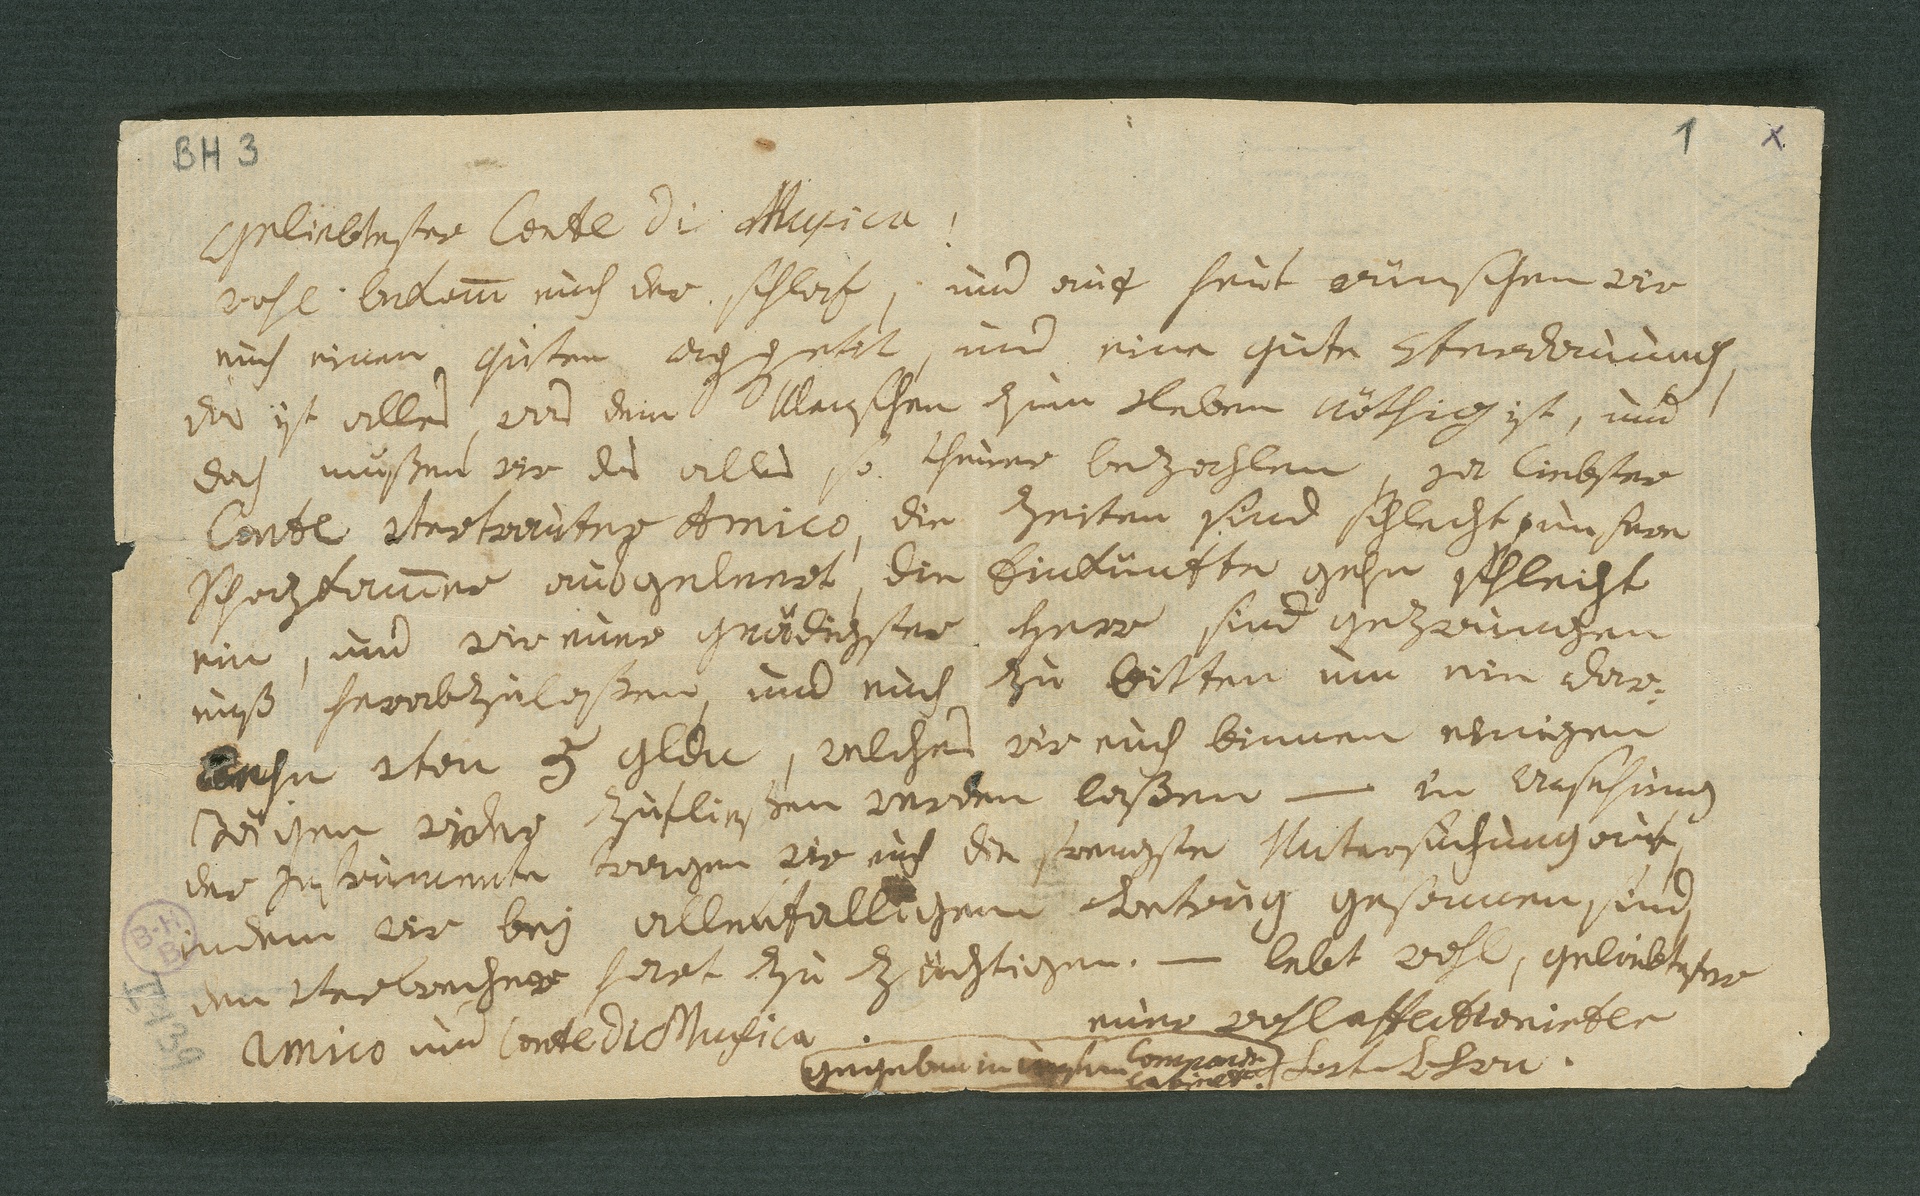 BH 3
1
x
geliebtester Conte di Musica!
wohl bekomm euch der schlaf, und auf heut wünschen wir
euch einen guten appetit, und eine gute Verdauung,
das ist alles, was dem Menschen zum Leben nöthig ist, und
doch müßen wir das alles so theuer bezahlen, ja liebster
Conte vertrauter Amico, die Zeiten sind schlecht, unsere
schazkammer ausgeleert, die Einkünfte gehn schlecht
ein, und wir euer gnädigster Herr sind gezwungen
unß herabzulaßen, und euch zu bitten um ein dar-
lehn von 5 gldn, welches wir euch binnen einigen
Tägen wieder zufließen werden laßen — in Ansehung
der Instrumente tragen wir euch die strengste Untersuchung auf,
indem wir bey allenfalligem Betrug gesonnen sind,
den Verbrecher hart zu züchtigen. — lebt wohl, geliebtester
Amico und Conte di Musica.
euer wohl affectionirter
gegeben in unserm Compositions
Cabinett.
L. v. Bthvn.
B-H
B